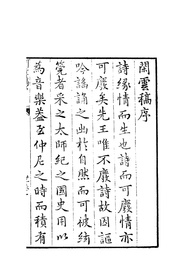 閒雲稿序
詩緣情而生也詩而可廢情亦
可廢矣先王唯不廢詩故因謳
吟謠誦之出於自然而可被絃
筦者采之太師紀之國史用以
為音樂蓋至仲尼之時而積者